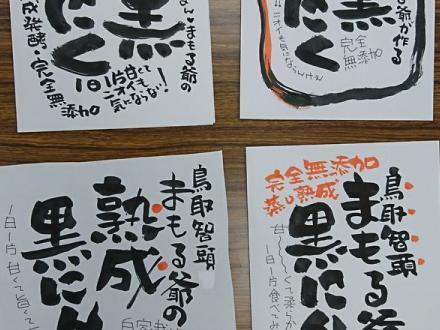 まもる爺の
黒
にく
成発酵・完全無添加
1日
1片
甘くて
ニオイも
気にならない!
爺が作る
黒
にく
完全
無添加
ニオイも気にならんけん
鳥取智頭
まもる爺の
熟成
黒に
1日1片 甘くて旨くて
完全無添加
蒸し熟成
鳥取智頭
まもる爺
黒に
甘〜〜くて柔らか
1日1片食べてみ